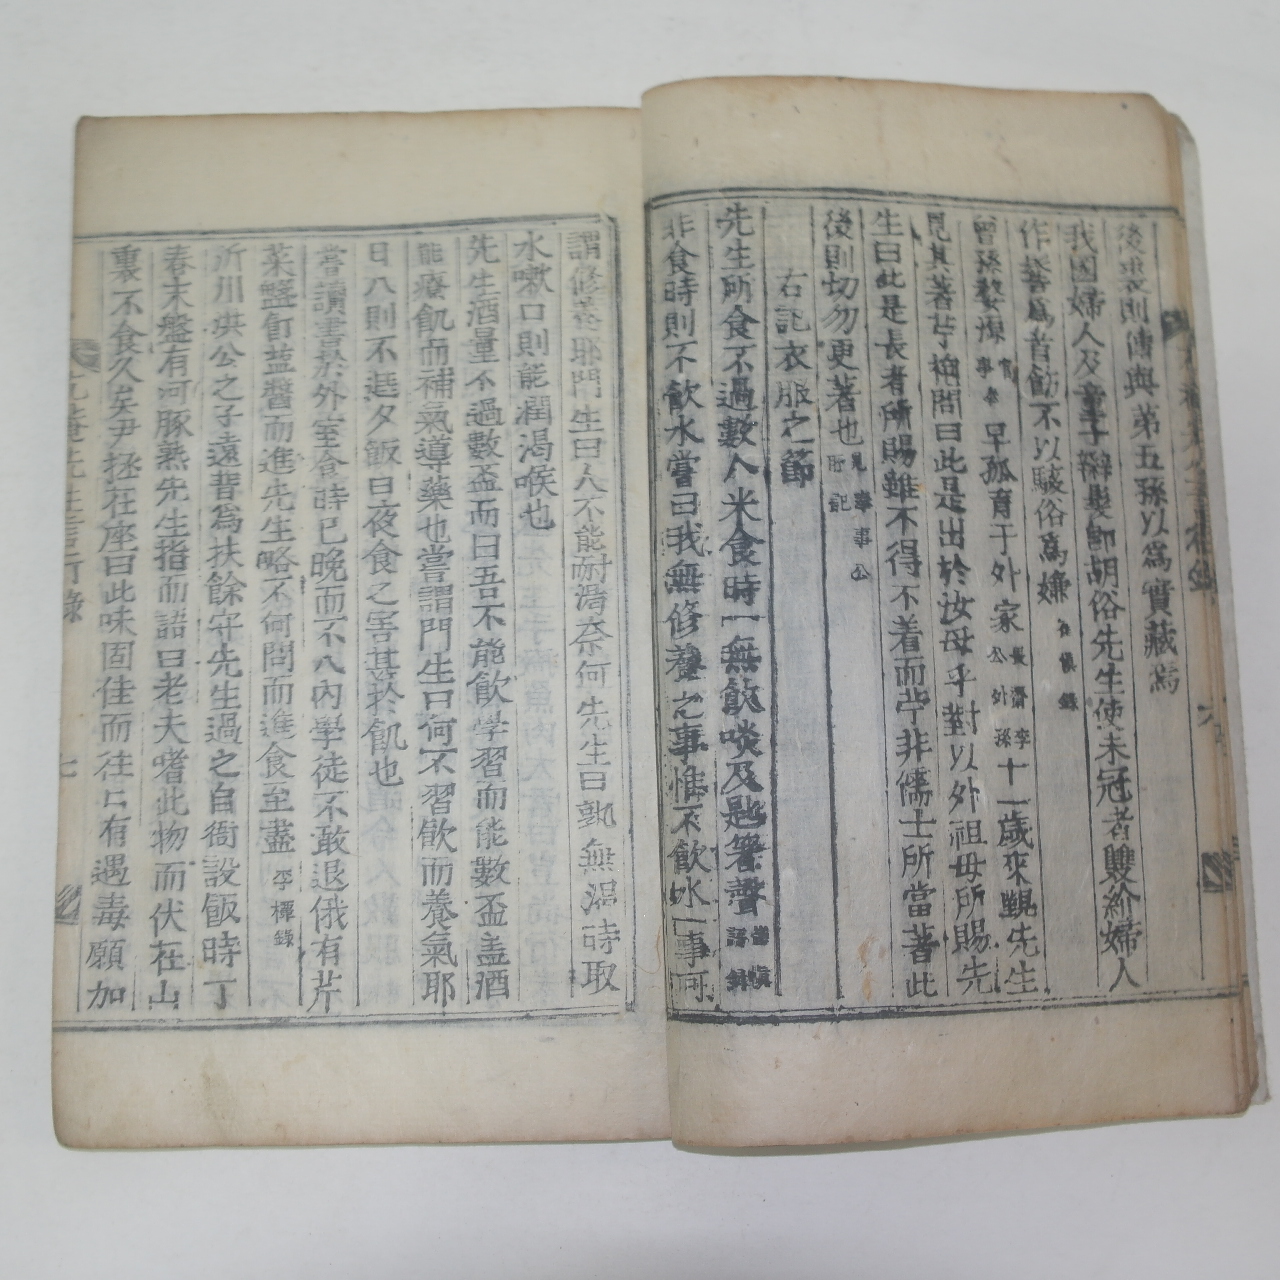 後裘則傳與弟五孫以爲實藏焉
我國婦人及童子辮髮卽胡俗先生使未冠者雙紒婦人
作髻爲首飾不以駭俗爲嫌
曾孫婺源 早孤育于外家 十一歲來覲先生
見其著芐 問曰此是出於汝母乎對以外祖母所賜先
生曰此是長者所賜雖不得不着而芐非儒士所當著此
後則切勿更著也
右記衣服之節
先生所食不過數八米食時一無飮啖及匙箸聲 崔愼錄
非食時則不飮水嘗曰我無修養之事惟不飮水一事可
謂修養耶門生曰人不能耐渴奈何先生曰孰無渴時取
水嗽口則能潤渴喉也
先生酒量不過數盃而曰吾不能飮學習而能數盃盖酒
能療飢而補氣導藥也嘗謂門生曰何不習飮而養氣耶
日八則不進夕飯曰夜食之害甚於飢也
嘗讀書於外室食時已晩而不入內學徒不敢退俄有芹
菜盤飣葅醬而進先生略不何問而進食至盡 李橝錄
所川洪公之子遠普爲扶餘守先生過之自衙設飯時丁
春末盤有河豚烝先生指而語曰老夫嗜此物而伏在山
裏不食久矣尹拯在座曰此味固佳而往往有遇毒願加
尤庵先生言行錄
七